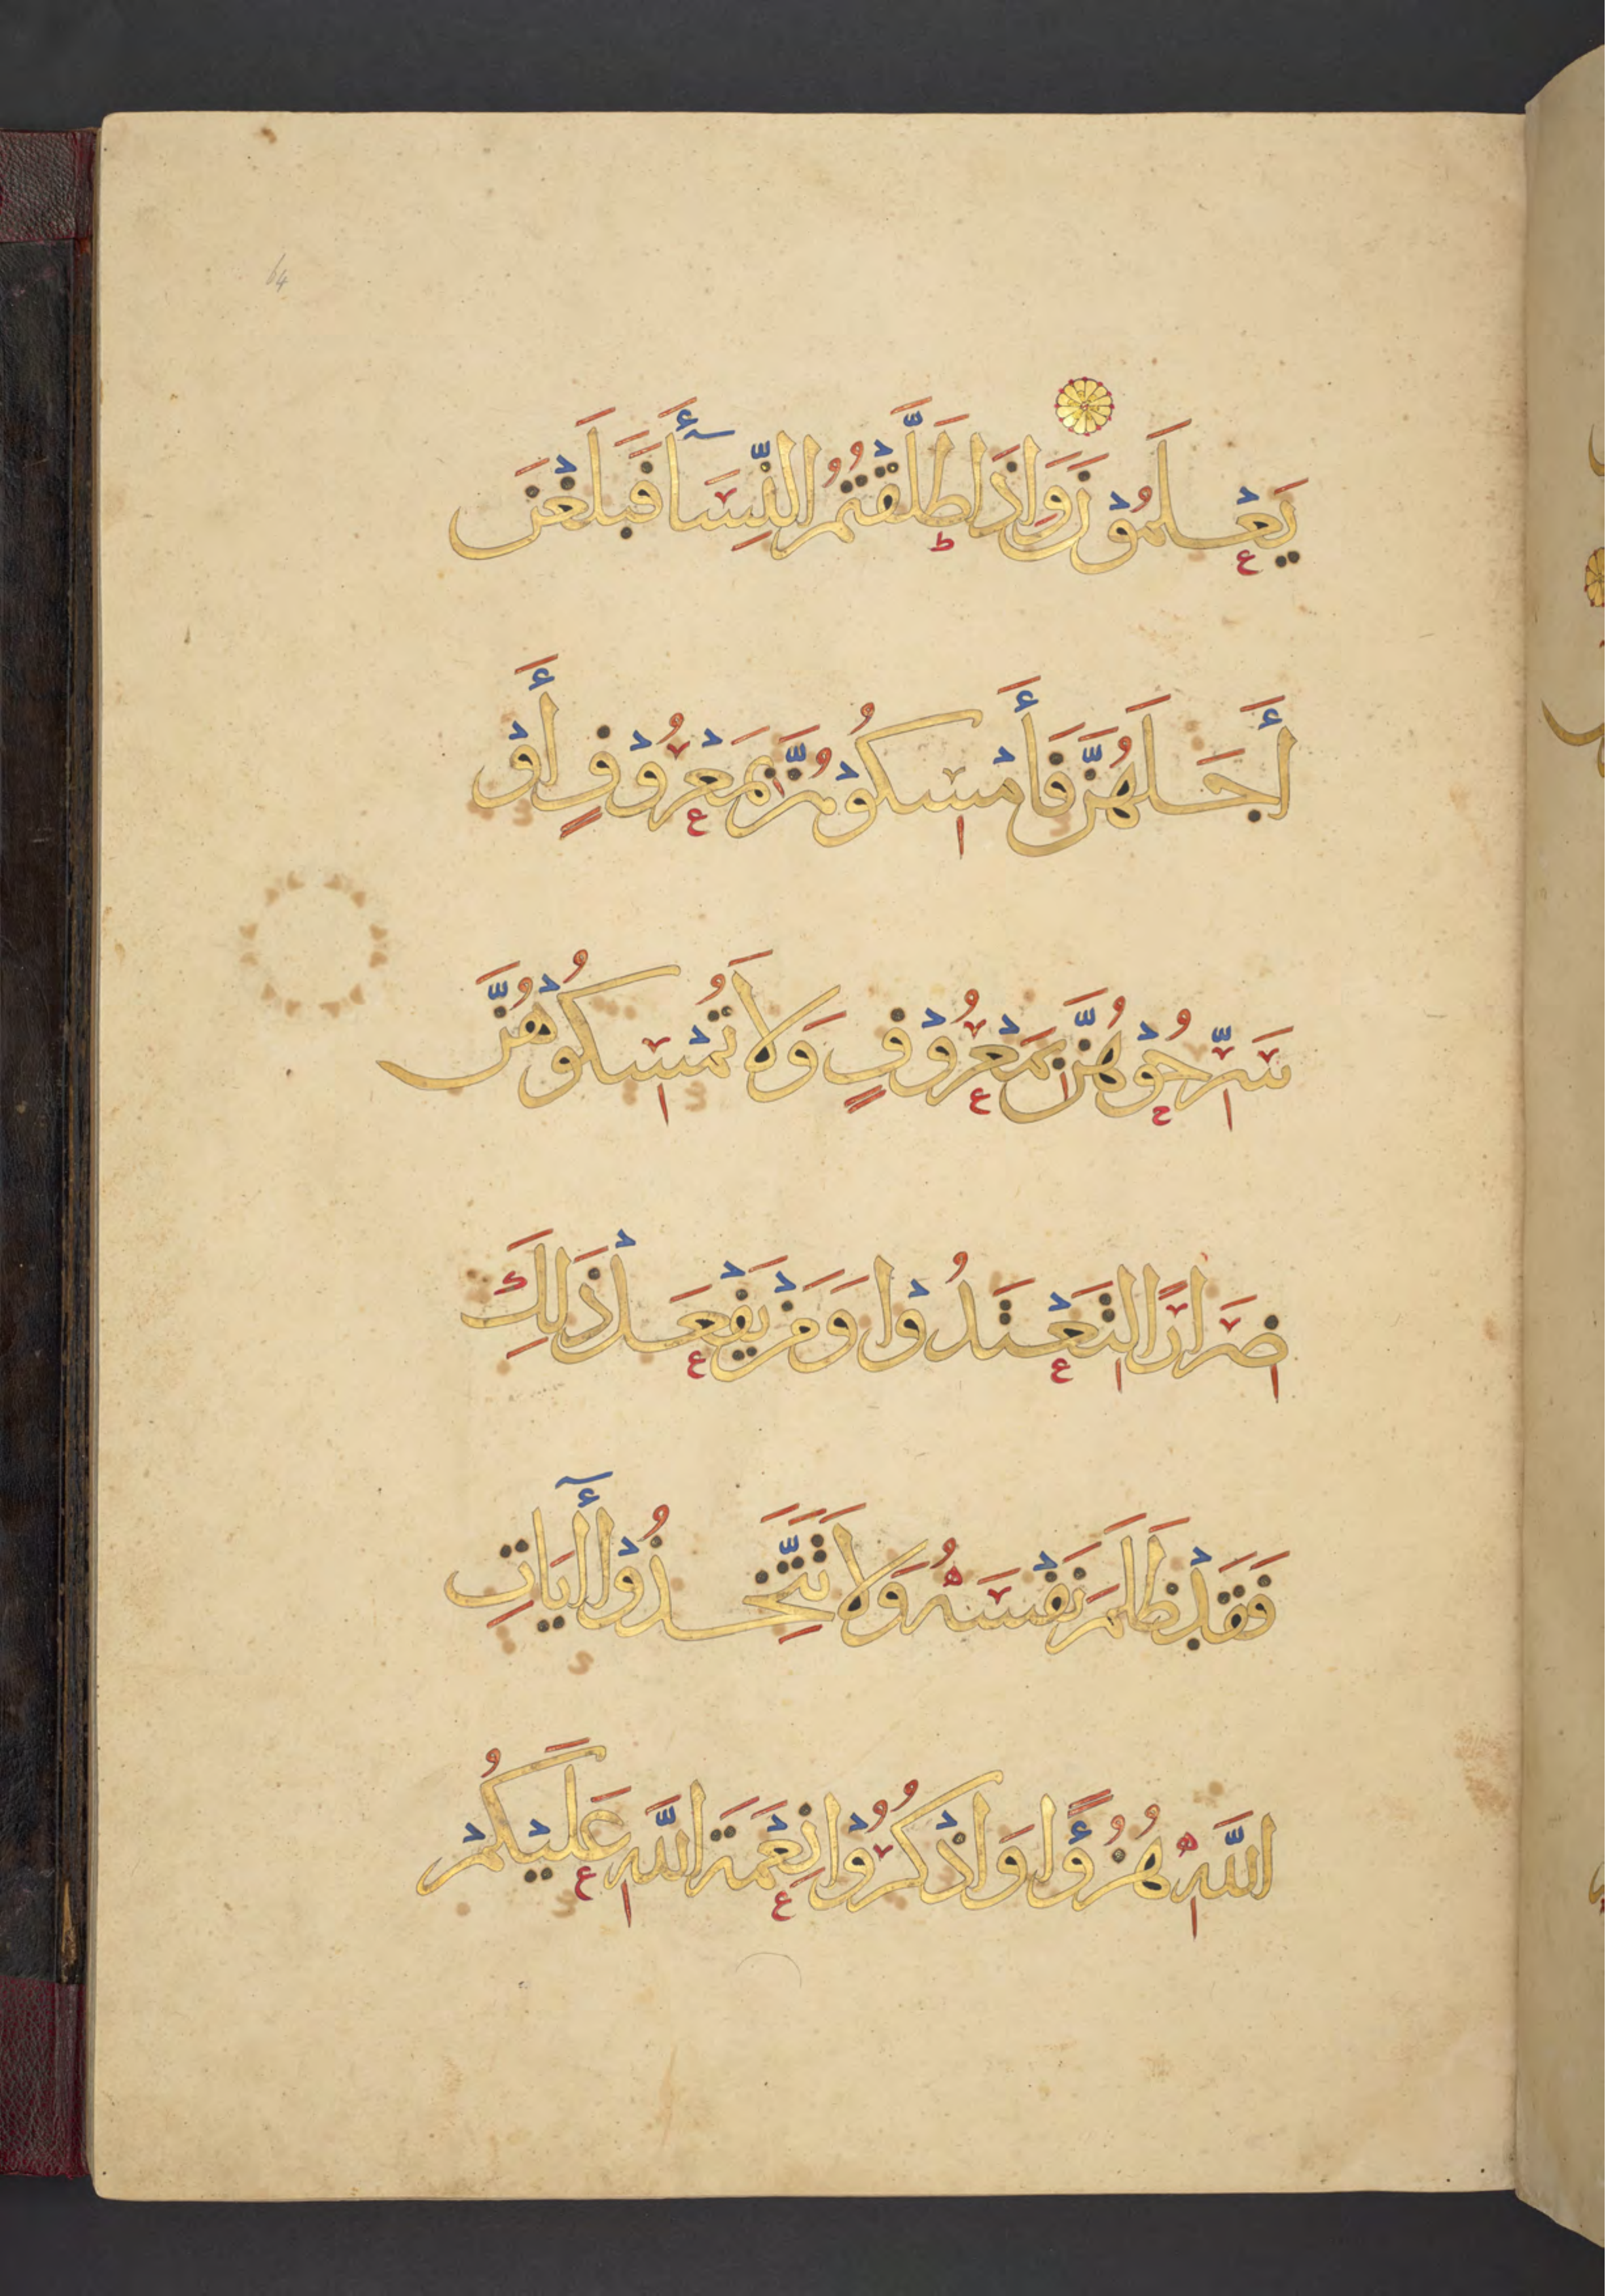 64
يَعْلَمُوْنَ وَاِذَا طَلَّقْتُمُ النِّسَآءَ فَبَلَغْنَ
أَجَلَهُنَّ فَأَمْسِكُوْهُنَّ بِمَعْرُوْفٍ أَوْ
سَرِّحُوْهُنَّ بِمَعْرُوْفٍ وَلَا تُمْسِكُوْهُنَّ
ضِرَارًا لِتَعْتَدُوْا وَمَنْ يَفْعَلْ ذَلِكَ
فَقَدْ ظَلَمَ نَفْسَهُ وَلَا تَتَّخِذُوْا أٓيَاتِ
اللَّهِ هُزُؤًا وَاذْكُرُوْا نِعْمَةَ اللَّهِ عَلَيْكُمْ